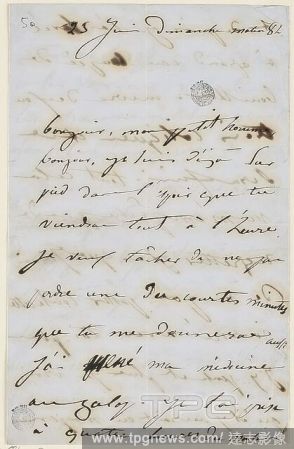 50
25 Juin Dimanche matin 8 h
bonjour, mon petit homme
bonjour, je suis déjà sur
pied dans l'espoir que tu
viendras tout à l'heure.
Je veux tâcher de ne pas
perdre une des courtes minutes
que tu me donneras aussi
j'ai ma médecine
au galop je l'ai prise
à
TPG
www.tpgnews.com 達志影像